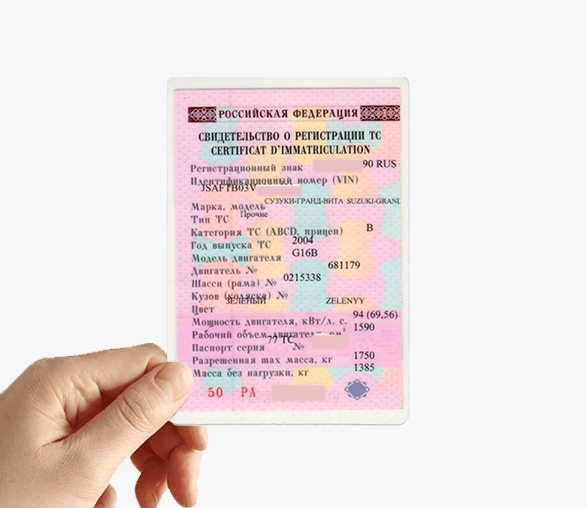 РОССИЙСКАЯ ФЕДЕРАЦИЯ
СВИДЕТЕЛЬСТВО О РЕГИСТРАЦИИ ТС
CERTIFICAT D'IMMATRICULATION
Регистрационный знак 90 RUS
Идентификационный номер (VIN)
JSAFTB03V
СУЗУКИ-ГРАНД-ВИТА SUZUKI-GRAND
Марка, модель
Тип ТС Прочие
Категория ТС (ABCD, прицеп) B
Год выпуска ТС 2004
Модель двигателя G16B
Двигатель № 681179
Шасси (рама) № 0215338
Кузов (коляска) №
Цвет ЗЕЛЕНЫЙ ZELENYY
Мощность двигателя, кВт/л. с. 94 (69,56)
Рабочий объем двигателя, см³ 1590
Паспорт серия 77 ТС №
Разрешенная max масса, кг 1750
Масса без нагрузки, кг 1385
50 РА